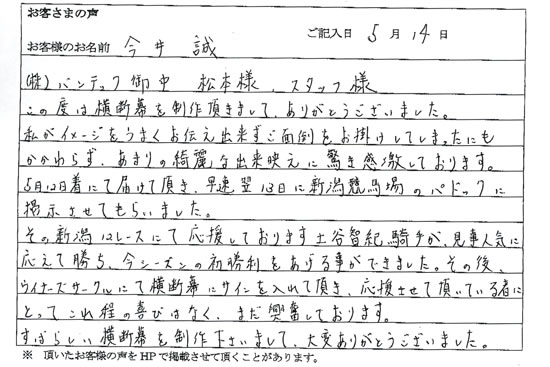 お客さまの声
ご記入日 5 月 14 日
お客様のお名前 今井 誠
(株)バンテック御中 松本様、スタッフ様
この度は横断幕を制作頂きまして、ありがとうございました。
私がイメージをうまくお伝え出来ずご面倒をお掛けしてしまったにも
かかわらず、あまりの綺麗な出来映えに驚き感激しております。
5月12日着にて届けて頂き、早速翌13日に新潟競馬場のパドックに
掲示させてもらいました。
その新潟12レースにて応援しております土谷智紀騎手が、見事人気に
応えて勝ち、今シーズンの初勝利をあげる事ができました。その後、
ウイナーズサークルにて横断幕にサインを入れて頂き、応援させて頂いている者に
とってこれ程の喜びはなく、まだ興奮しております。
すばらしい横断幕を制作下さいまして、大変ありがとうございました。
※ 頂いたお客様の声をHPで掲載させて頂くことがあります。